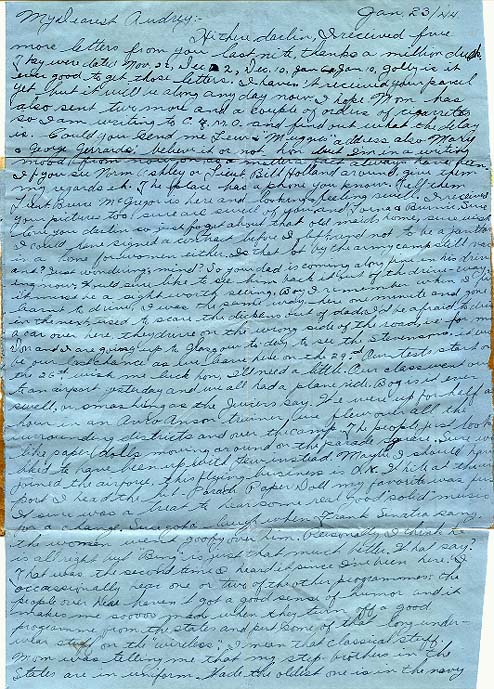 My Dearest Audrey:-
Jan. 23/44
Hi there darlin, I received five
more letters from you last nite, thanks a million
They were dated Nov. 25, Dec 2, Dec. 10, Jan Jan 10, golly is it
ever good to get those letters. I haven't received your parcel
yet, but it will be along any day now, I hope. Mom has
also sent two more and a couple of orders of cigarettes
so I am writing to and find out what the delay
is. Could you send me address also Merry
& George Gerards, believe it or not I'm in a writing
mood from now on
If you see Norm Ashley or Lieut Bill Holland around give them
my regards eh. The place has a phone you know. Half them
Lieut Bruce McGregor is here and looking feeling swell. I received
your pictures too, sure are swell of you and Norma & Bernie. Sure
love you darlin so just forget about that old maids home, sure wish
I could have signed a contract before I left but not to be a janitor
in a home for women either. Is that by the army camp still
and? Just wondering, mind? So your dad is coming along fine in his driv-
ing now. Would sure like to see him back it out of the drive-way
it must be a sight worth seeing. Boy I remember when I first
learnt to drive, I was the same way, here one minute and gone
in the next, used to scare the dickens out of dad. I'd be afraid to drive
a car over here, they drive on the wrong side of the road, for me
Don and I are going up to Glasgow to-day to see the Stevensons
be our last chance as we leave here on the 29th. Our tests start on
the 26th wish me luck hon, I'll need a little. Our class went over
to an airport yesterday and we all had a plane ride. Boy is it ever
swell, or smashing as the say. We were up for half an
hour in an Avro Anson trainer, we flew over all the
surrounding districts and over the camp. The people just look
like paper dolls moving around on the parade square. Sure would
liked to have been up with Stew instead. Maybe I should have
joined the airforce, this flying business is O.K. While at the air-
port I heard the hit Parade, Paper Doll my favourite was first
It sure was a treat to hear some real good solid music
for a change. Sure got a laugh when Frank Senatra sang
the women went goofy over him. Personally I think he
is all right but Bing is just that much better. What say?
That was the second time I heard it since I've been here. I
occassionally hear one or two of the other programmes. The
people over here haven't got a good sense of humor and it
makes me sooooo mad when they turn off a good
programme from the states and put some of that long under-
wear stuff on the wireless: I mean that classical stuff.
Mom was telling me that my step-brothers in the
States are in uniform. Wade the oldest one is in the navy